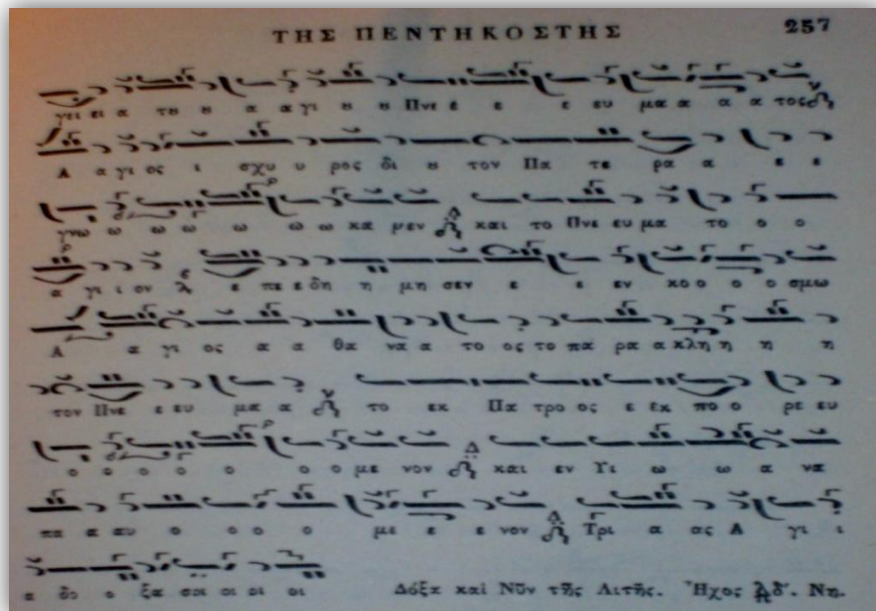 ΤΗΣ ΠΕΝΤΗΚΟΣΤΗΣ 257
γει ει α τȣ ȣ α α γι ȣ ȣ Πνε ε ε ε ευ μα α α α τος
Α α γι ος ι σχυ υ ρος δι ȣ τον Πα τε ρα α ε ε
γνω ω ω ω ω ω ω κα μεν Δ και το Πνε ευ μα το ο ο
α γι ι ον ε πε ε δη η μη σεν ε ε εν κο ο ο ο σμω
Α α γι ος α α θα να α το ος το πα ρα α κλη η η η
τον Πνε ε ευ μα α το εκ Πα τρο ος ε εκ πο ο ρε ευ
ο ο ο ο ο ο ο με νον Δ και εν Υι ω ω α να
πα α αυ ο ο ο ο με ε ε νον Δ Τρι α ας Α γι ι
α δο ο ξα σοι οι οι οι Δόξα καὶ Νῦν τῆς Λιτῆς. Ἦχος δʹ. Νη.